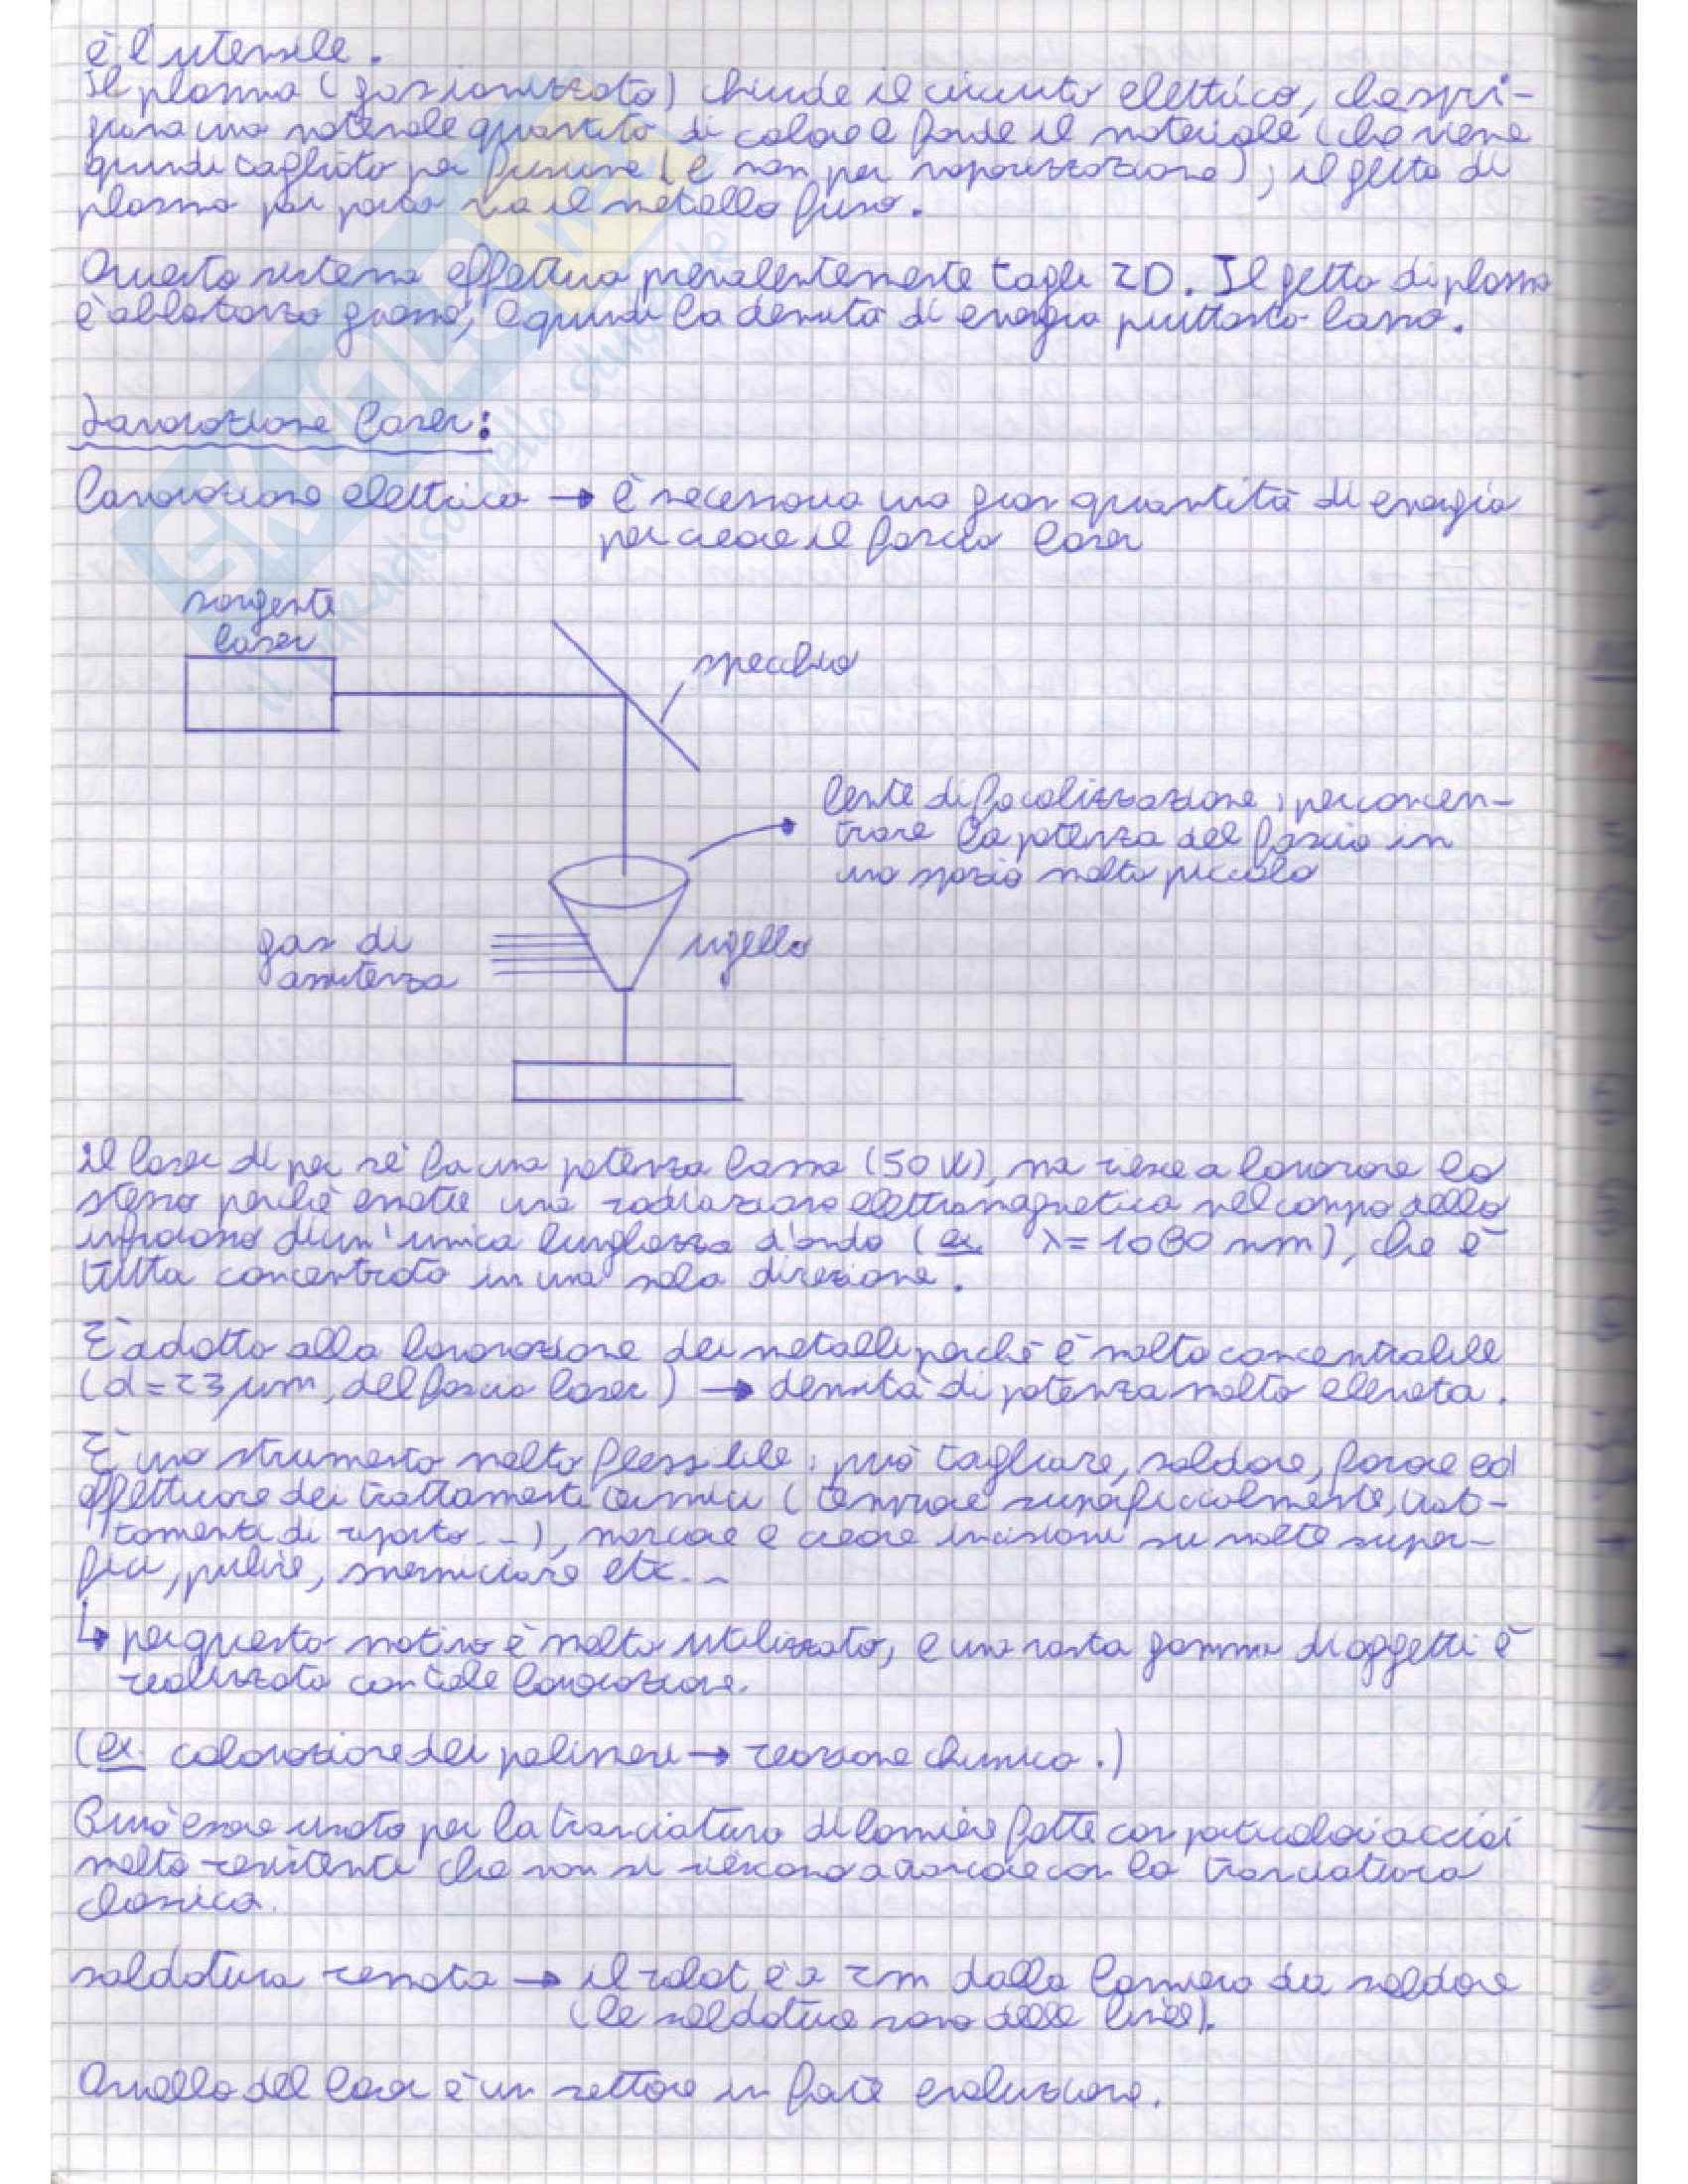 è l'utensile.
Il plasma (gas ionizzato) chiude il circuito elettrico, che spri-
giona una notevole quantità di calore e fonde il materiale (che viene
quindi tagliato per fusione (e non per vaporizzazione); il getto di
plasma poi porta via il metallo fuso.
Questo sistema effettua prevalentemente tagli 2D. Il getto di plasma
è abbastanza grosso, e quindi la densità di energia piuttosto bassa.
Lavorazione laser:
lavorazione elettrica → è necessaria una gran quantità di energia
per creare il fascio laser
sorgente
laser
specchio
lente di focalizzazione, per concen-
trare la potenza del fascio in
uno spazio molto piccolo
gas di
assistenza
ugello
il laser di per sé ha una potenza bassa (50 W), ma riesce a lavorare lo
stesso perché emette una radiazione elettromagnetica nel campo dello
infrarosso di un'unica lunghezza d'onda (ex. λ=1080 nm), che è
tutta concentrata in una sola direzione.
È adatto alla lavorazione dei metalli perché è molto concentrabile
(d=23 μm, del fascio laser) → densità di potenza molto elevata.
È uno strumento molto flessibile: può tagliare, saldare, forare ed
effettuare dei trattamenti termici (temprare superficialmente, trat-
tamenti di riporto...), marcare e creare incisioni su molte super-
fici, pulire, sverniciare etc...
↳ per questo motivo è molto utilizzato, e una vasta gamma di oggetti è
realizzata con tale lavorazione.
(ex. colorazione dei polimeri → reazione chimica.)
Può essere usato per la tranciatura di lamiere fatte con particolari acciai
molto resistenti che non si riescono a tranciare con la tranciatura
classica.
saldatura remota → il robot è a 2m dalla lamiera da saldare
(le saldature sono delle linee).
Quello del laser è un settore in forte evoluzione.
SKUOLA.NET
il paradiso dello studente